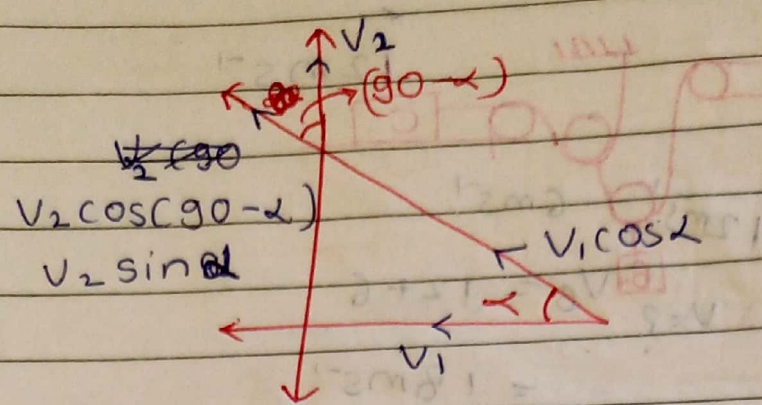 V₂
(90-α)
V₂ cos(90-α)
V₂ sinα
V₁ cosα
α
V₁